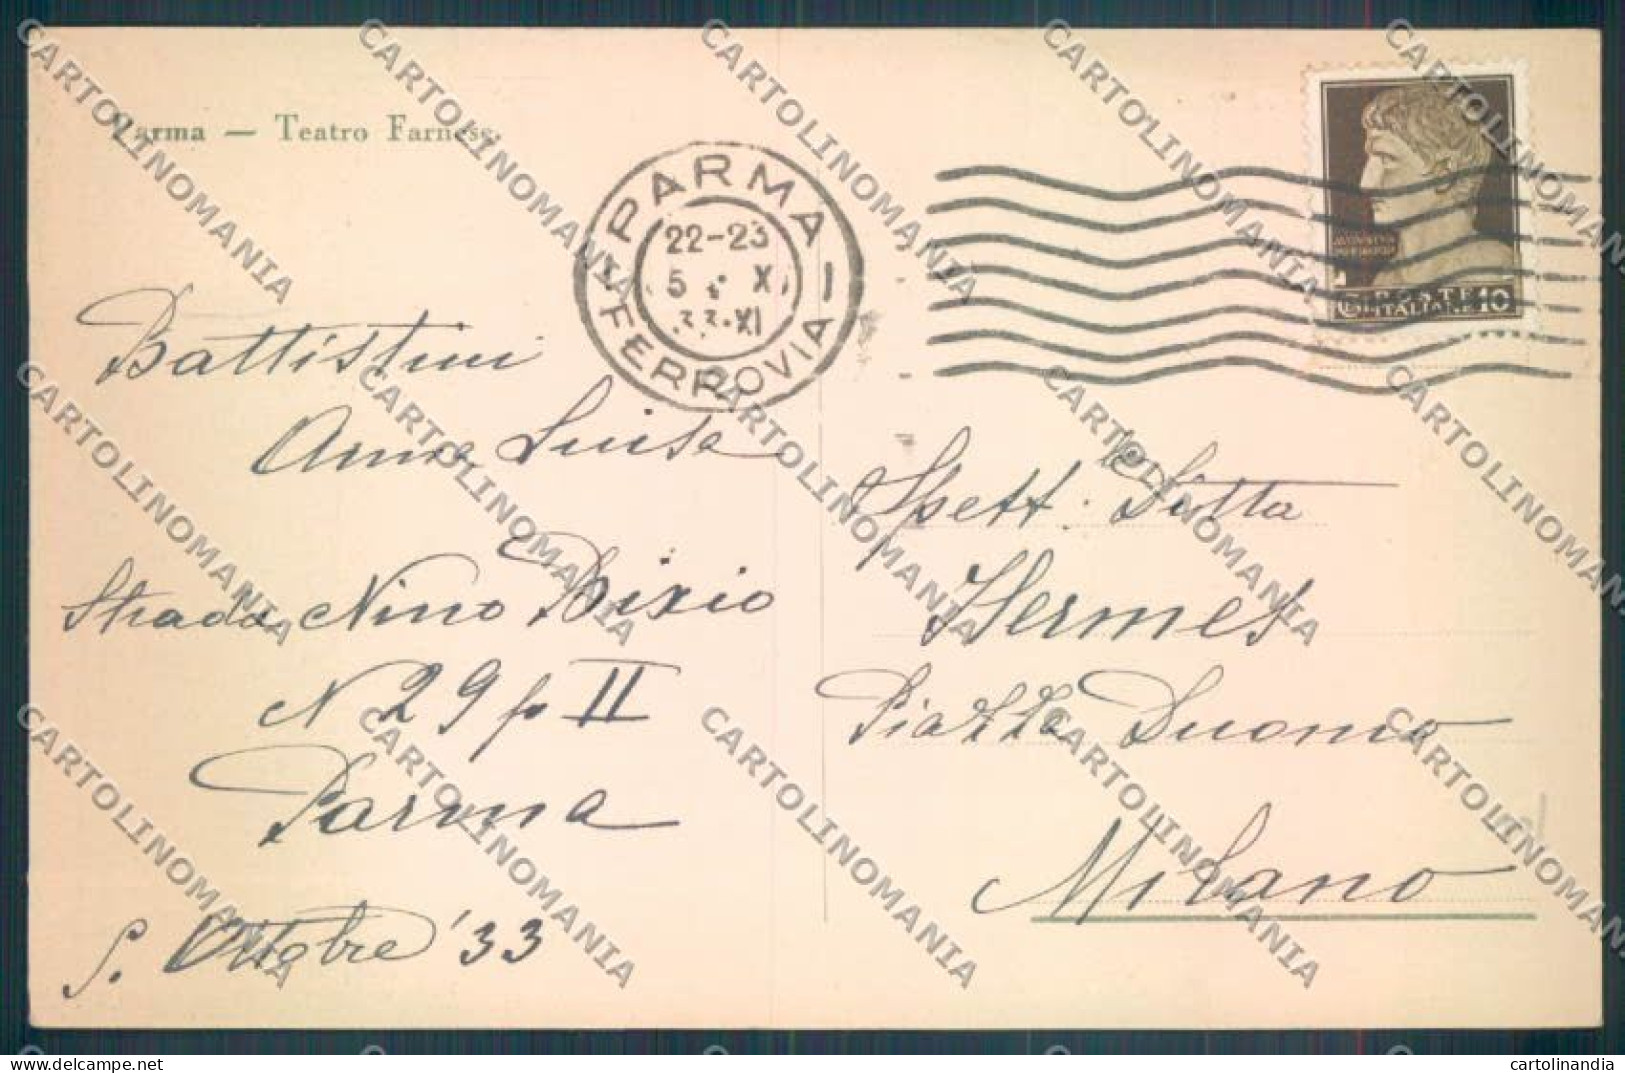 Parma — Teatro Farnese.
PARMA
FERROVIA
22-23
5 X
33·XI
POSTE
ITALIANE
10
Battistini
Anna Luisa
Strada Nino Bixio
N 29 p II
Parma
5. Ottobre '33
Spett. le Ditta
Hermes
Piazza Duomo
Milano
CARTOLINOMANIA
cartolinandia